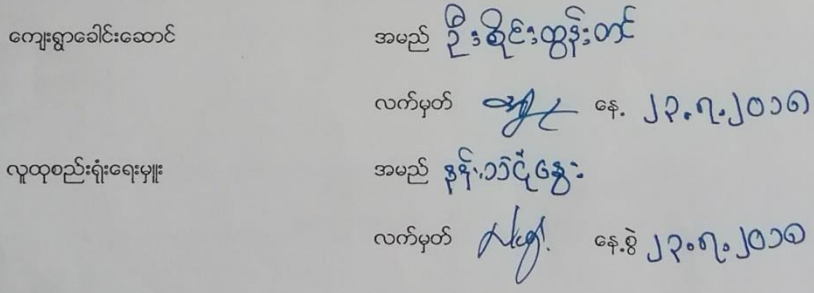 ကျေးရွာခေါင်းဆောင် အမည် ဦးစိုင်းထွန်းတင်
လက်မှတ် နေ့ ၂၃.၇.၂၀၁၈
လူထုစည်းရုံးရေးမှူး အမည် နန်း နွေး
လက်မှတ် နေ့စွဲ ၂၃.၇.၂၀၁၈